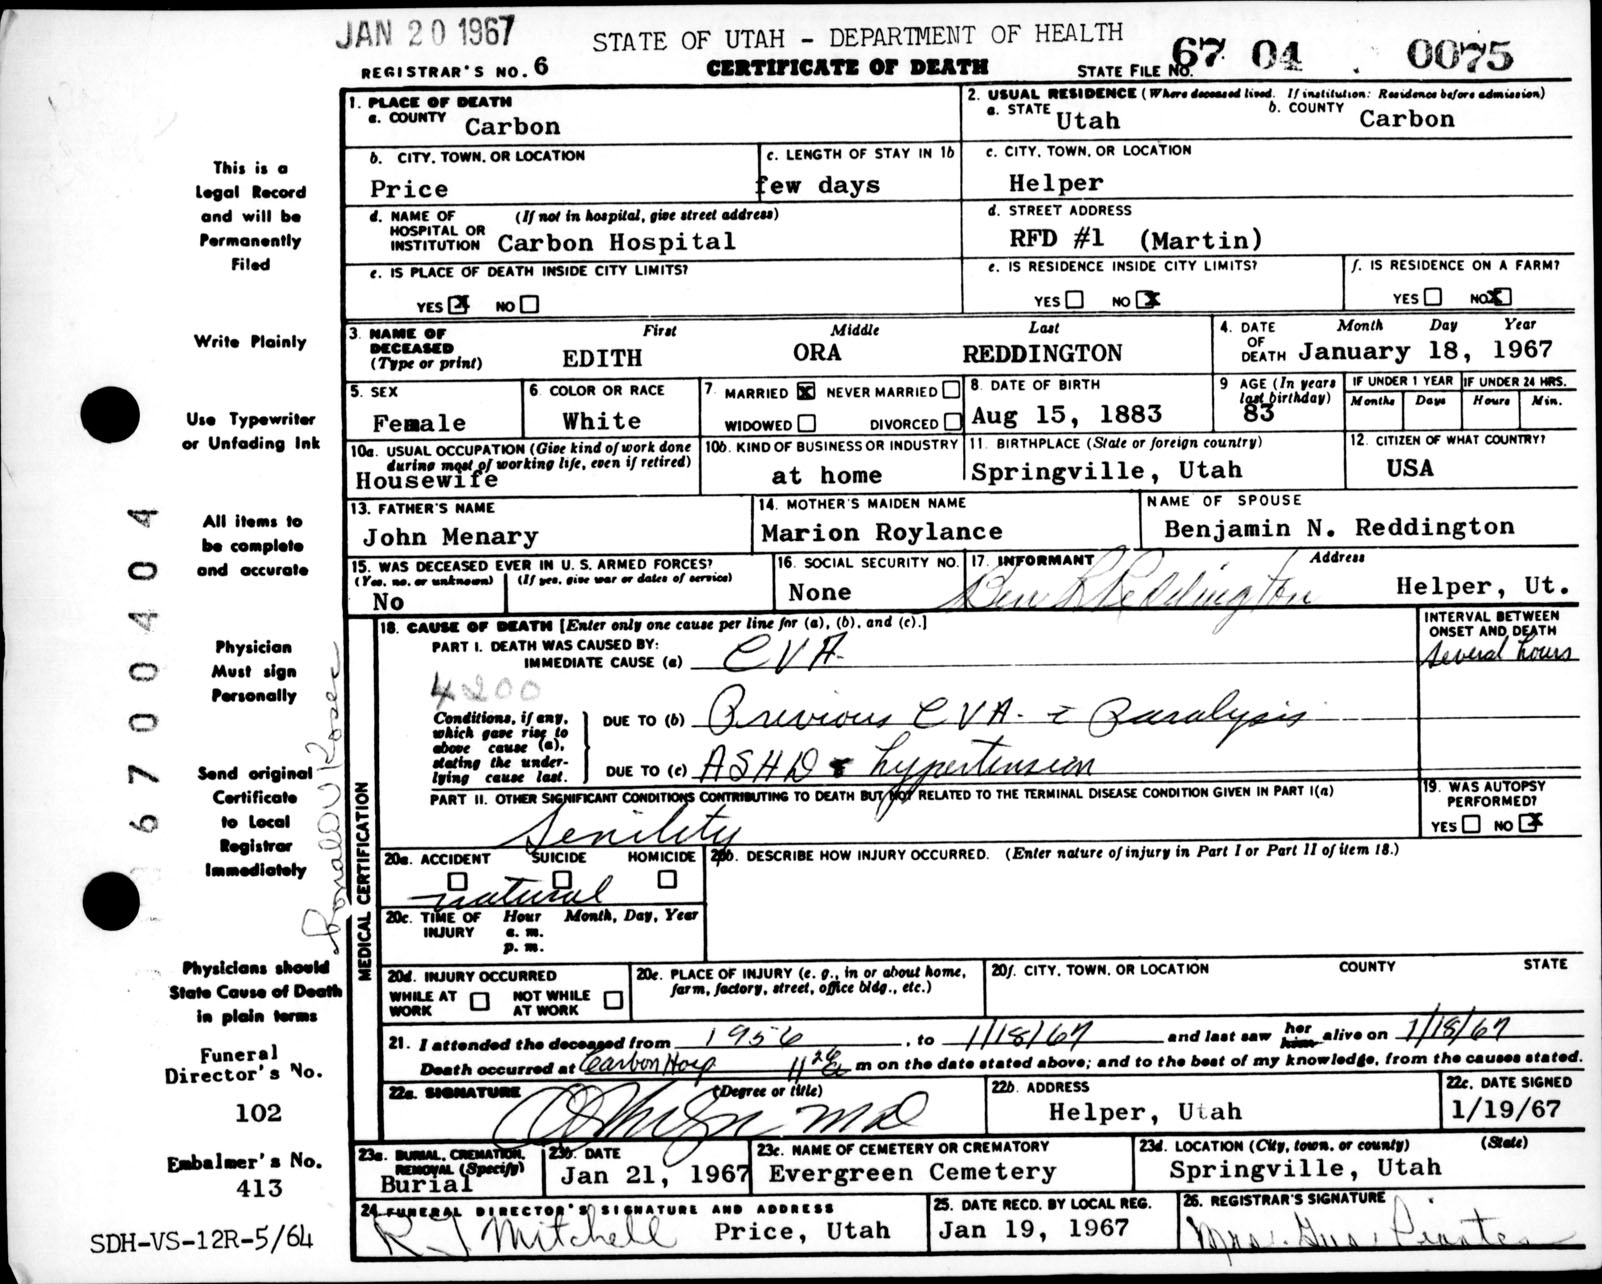 JAN 20 1967
STATE OF UTAH - DEPARTMENT OF HEALTH
REGISTRAR'S NO. 6
CERTIFICATE OF DEATH
STATE FILE NO. 67 04 0075
1. PLACE OF DEATH
a. COUNTY Carbon
2. USUAL RESIDENCE (Where deceased lived. If institution: Residence before admission)
a. STATE Utah b. COUNTY Carbon
b. CITY, TOWN, OR LOCATION Price
c. LENGTH OF STAY IN 1b few days
c. CITY, TOWN, OR LOCATION Helper
d. NAME OF HOSPITAL OR INSTITUTION (If not in hospital, give street address) Carbon Hospital
d. STREET ADDRESS RFD #1 (Martin)
e. IS PLACE OF DEATH INSIDE CITY LIMITS?
YES X NO
e. IS RESIDENCE INSIDE CITY LIMITS?
YES NO X
f. IS RESIDENCE ON A FARM?
YES NO X
3. NAME OF DECEASED (Type or print) First EDITH Middle ORA Last REDDINGTON
4. DATE OF DEATH Month Day Year January 18, 1967
5. SEX Female
6. COLOR OR RACE White
7. MARRIED X NEVER MARRIED
WIDOWED DIVORCED
8. DATE OF BIRTH Aug 15, 1883
9 AGE (In years last birthday) 83
IF UNDER 1 YEAR Months Days
IF UNDER 24 HRS. Hours Min.
10a. USUAL OCCUPATION (Give kind of work done during most of working life, even if retired) Housewife
10b. KIND OF BUSINESS OR INDUSTRY at home
11. BIRTHPLACE (State or foreign country) Springville, Utah
12. CITIZEN OF WHAT COUNTRY? USA
13. FATHER'S NAME John Menary
14. MOTHER'S MAIDEN NAME Marion Roylance
NAME OF SPOUSE Benjamin N. Reddington
15. WAS DECEASED EVER IN U. S. ARMED FORCES?
(Yes, no, or unknown) No (If yes, give war or dates of service)
16. SOCIAL SECURITY NO. None
17. INFORMANT Ben Reddington Address Helper, Ut.
18. CAUSE OF DEATH [Enter only one cause per line for (a), (b), and (c).]
INTERVAL BETWEEN ONSET AND DEATH
PART I. DEATH WAS CAUSED BY:
IMMEDIATE CAUSE (a) CVA Several hours
4200
Conditions, if any, which gave rise to above cause (a), stating the underlying cause last.
DUE TO (b) Previous CVA c̄ Paralysis
DUE TO (c) ASHD & hypertension
PART II. OTHER SIGNIFICANT CONDITIONS CONTRIBUTING TO DEATH BUT NOT RELATED TO THE TERMINAL DISEASE CONDITION GIVEN IN PART I(a)
Senility
19. WAS AUTOPSY PERFORMED?
YES NO X
20a. ACCIDENT SUICIDE HOMICIDE
natural
20b. DESCRIBE HOW INJURY OCCURRED. (Enter nature of injury in Part I or Part II of item 18.)
20c. TIME OF INJURY Hour a. m. p. m. Month, Day, Year
20d. INJURY OCCURRED
WHILE AT WORK NOT WHILE AT WORK
20e. PLACE OF INJURY (e. g., in or about home, farm, factory, street, office bldg., etc.)
20f. CITY, TOWN, OR LOCATION COUNTY STATE
21. I attended the deceased from 1956, to 1/18/67 and last saw her him alive on 1/18/67
Death occurred at Carbon Hosp 11 26 a m on the date stated above; and to the best of my knowledge, from the causes stated.
22a. SIGNATURE (Degree or title) MD
22b. ADDRESS Helper, Utah
22c. DATE SIGNED 1/19/67
23a. BURIAL, CREMATION, REMOVAL (Specify) Burial
23b. DATE Jan 21, 1967
23c. NAME OF CEMETERY OR CREMATORY Evergreen Cemetery
23d. LOCATION (City, town, or county) (State) Springville, Utah
24 FUNERAL DIRECTOR'S SIGNATURE AND ADDRESS R J Mitchell Price, Utah
25. DATE RECD. BY LOCAL REG. Jan 19, 1967
26. REGISTRAR'S SIGNATURE Mrs. Gus
MEDICAL CERTIFICATION
This is a
Legal Record
and will be
Permanently
Filed
Write Plainly
Use Typewriter
or Unfading Ink
All items to
be complete
and accurate
Physician
Must sign
Personally
Send original
Certificate
to Local
Registrar
Immediately
Physicians should
State Cause of Death
in plain terms
Funeral
Director's No.
102
Embalmer's No.
413
SDH-VS-12R-5/64
6700404